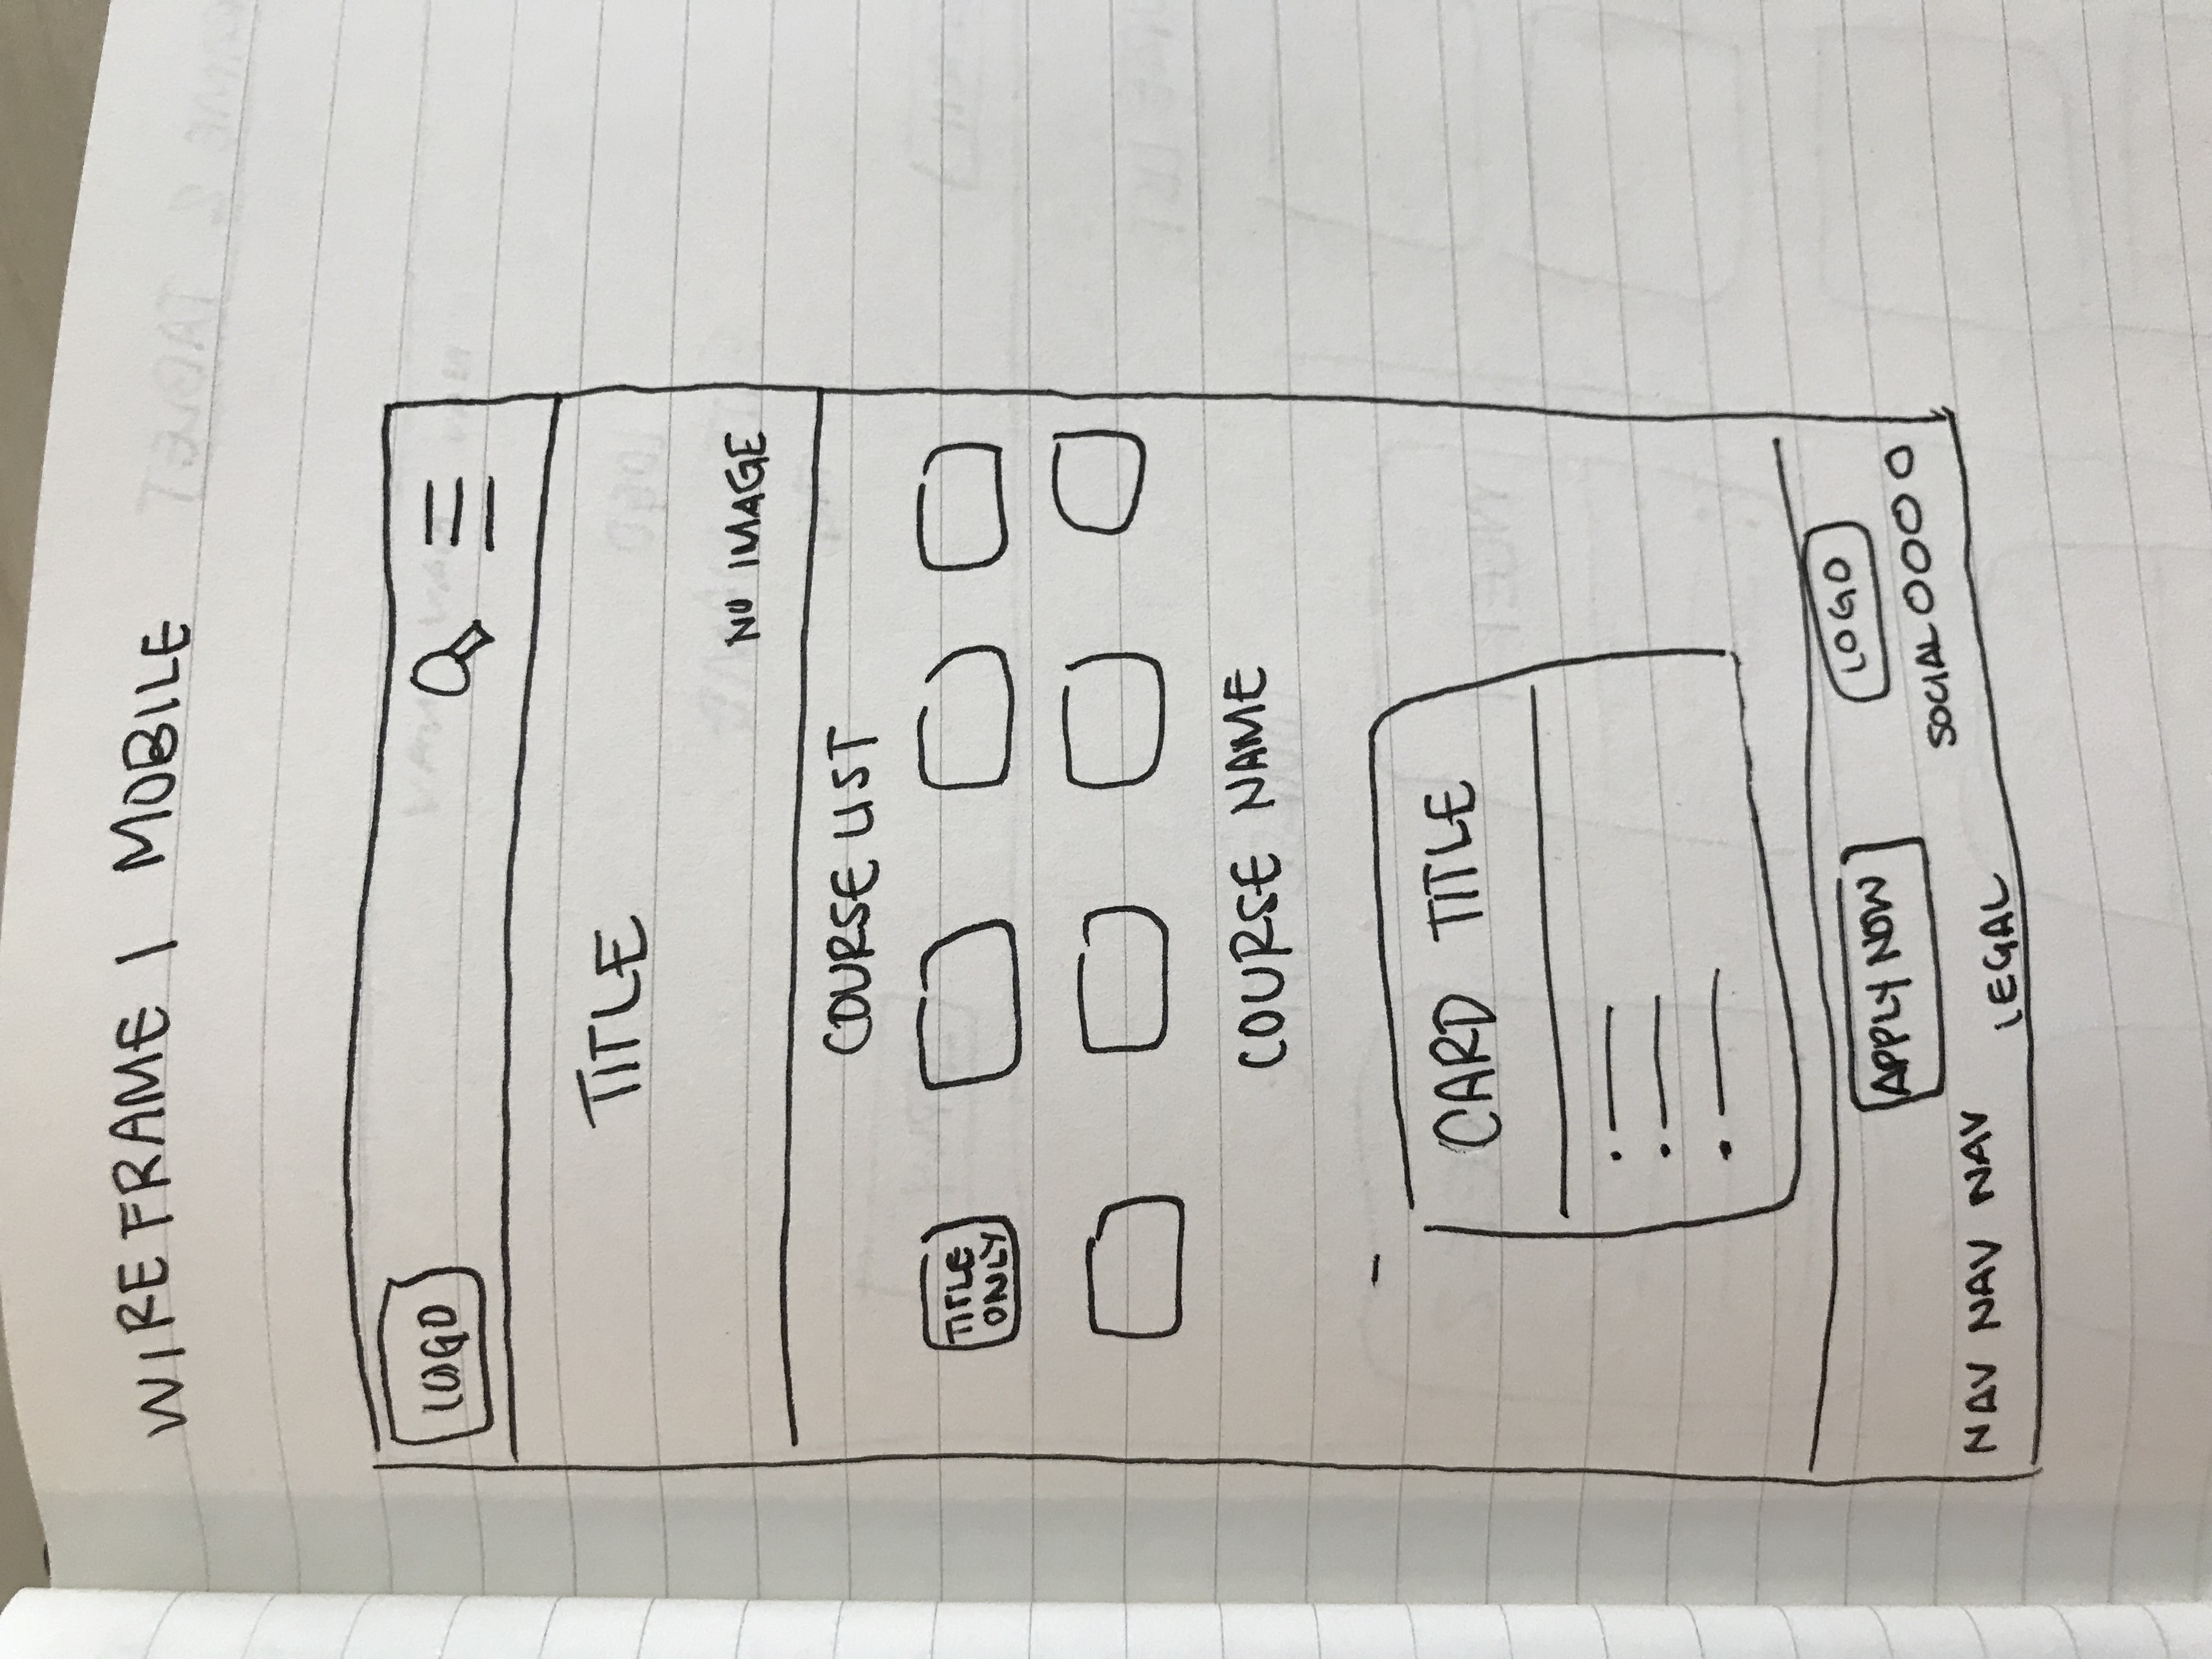 WIREFRAME 1 MOBILE
LOGO
TITLE
NO IMAGE
COURSE LIST
TITLE
ONLY
COURSE NAME
CARD TITLE
APPLY NOW
LOGO
SOCIAL
NAV NAV NAV
LEGAL